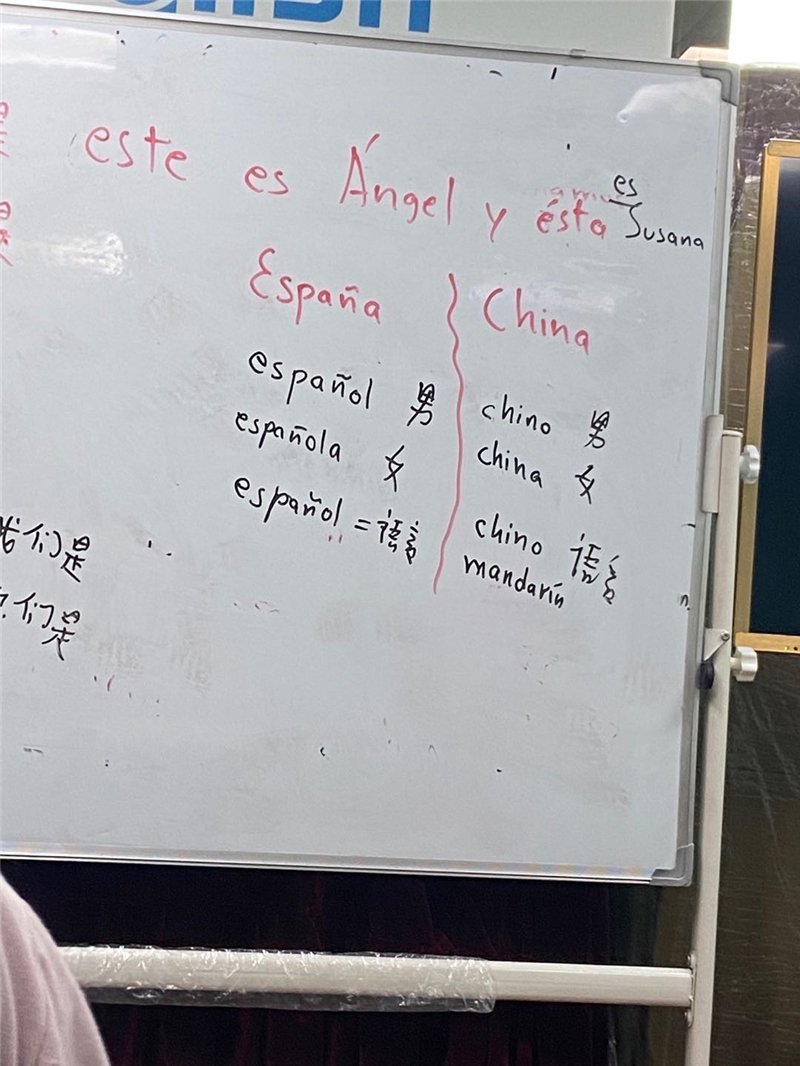 este es Ángel y ésta es Susana
España
China
español 男
chino 男
española 女
china 女
español = 语言
chino 语言
mandarín
们是
们是